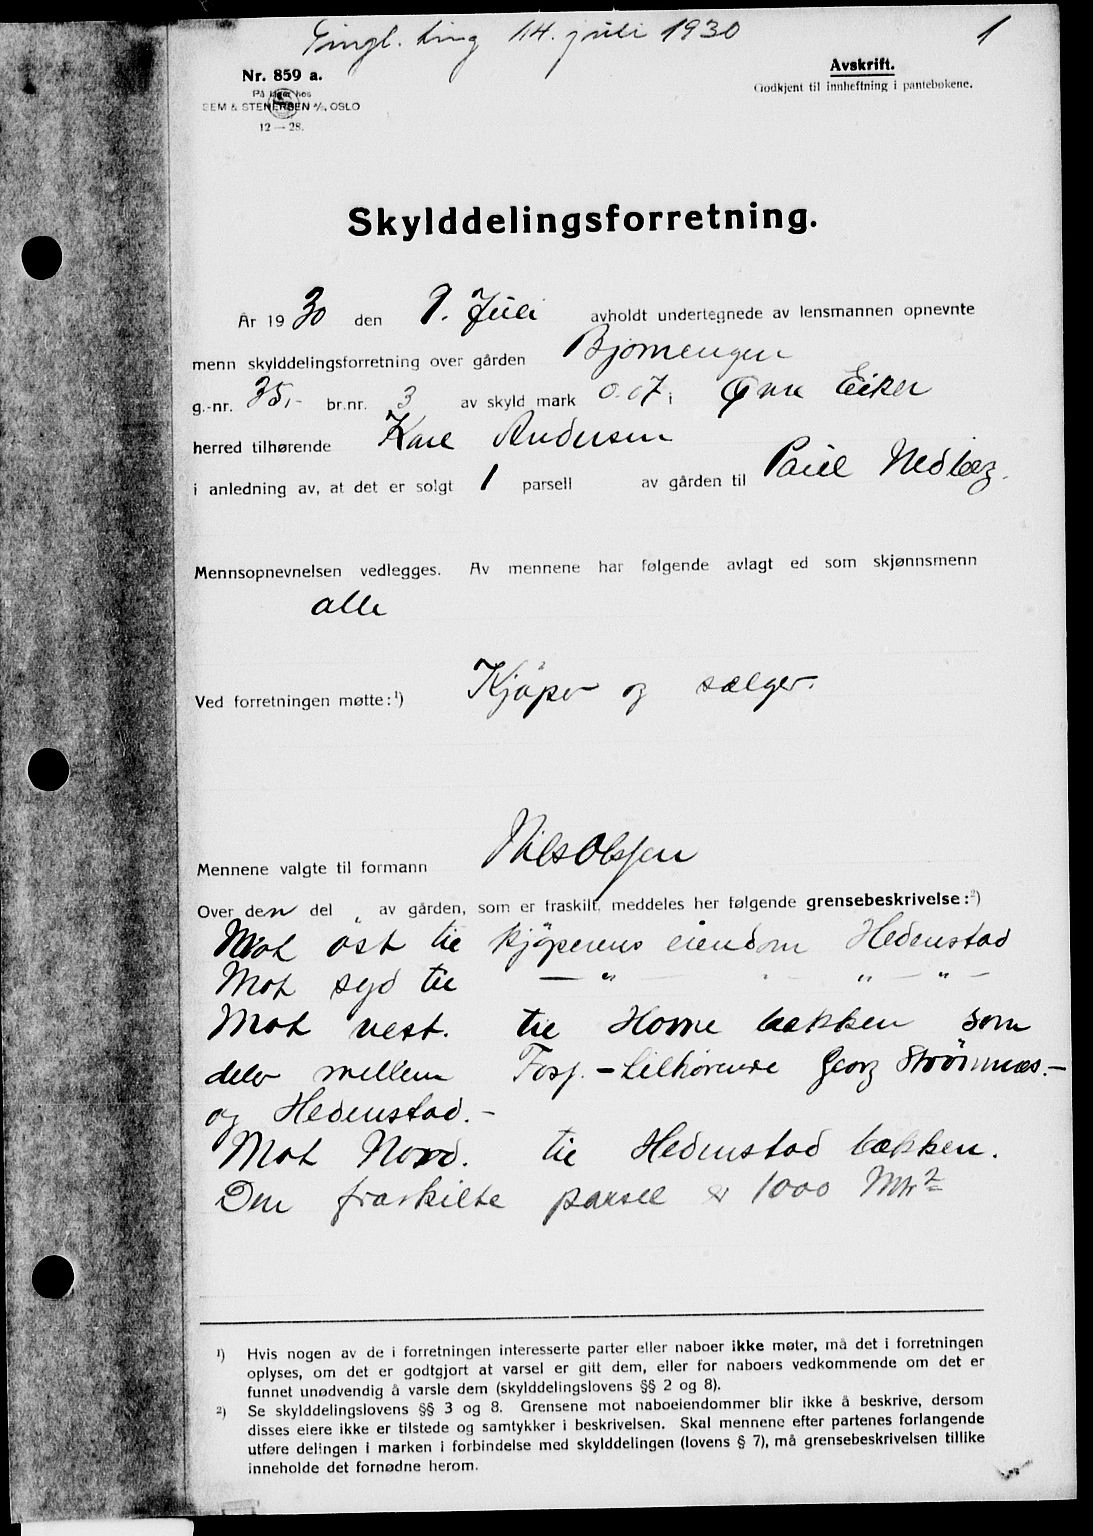 Tingl. ting 14. juli 1930
1
Nr. 859 a.
På lager hos
SEM & STENERSEN A/S, OSLO
12 — 28.
Avskrift.
Godkjent til innheftning i pantebøkene.
Skylddelingsforretning.
År 1930 den 9. Juli avholdt undertegnede av lensmannen opnevnte
menn skylddelingsforretning over gården Bjørnengen
g.-nr. 35,- br.nr. 3 av skyld mark 0.07 i Øvre Eiker
herred tilhørende Karl Andersen
i anledning av, at det er solgt 1 parsell av gården til Paul Nedberg.
Mennsopnevnelsen vedlegges. Av mennene har følgende avlagt ed som skjønnsmenn
alle
Ved forretningen møtte:¹) Kjøper og sælger.
Mennene valgte til formann Nils Olsen
Over den del „ av gården, som er fraskilt, meddeles her følgende grensebeskrivelse:²)
Mot øst til kjøperens eiendom Hedenstad
Mot syd til — " — " — " —
Mot vest. til Horne bækken som
deler mellem - tilhørende Georg Strømnæs.-
og Hedenstad.-
Mot Nord. til Hedenstad bækken.
Den fraskilte parsel er 1000 Mtr²
¹) Hvis nogen av de i forretningen interesserte parter eller naboer ikke møter, må det i forretningen
oplyses, om det er godtgjort at varsel er gitt dem, eller for naboers vedkommende om det er
funnet unødvendig å varsle dem (skylddelingslovens §§ 2 og 8).
²) Se skylddelingslovens §§ 3 og 8. Grensene mot naboeiendommer blir ikke å beskrive, dersom
disses eiere ikke er tilstede og samtykker i beskrivelsen. Skal mennene efter partenes forlangende
utføre delingen i marken i forbindelse med skylddelingen (lovens § 7), må grensebeskrivelsen tillike
inneholde det fornødne herom.